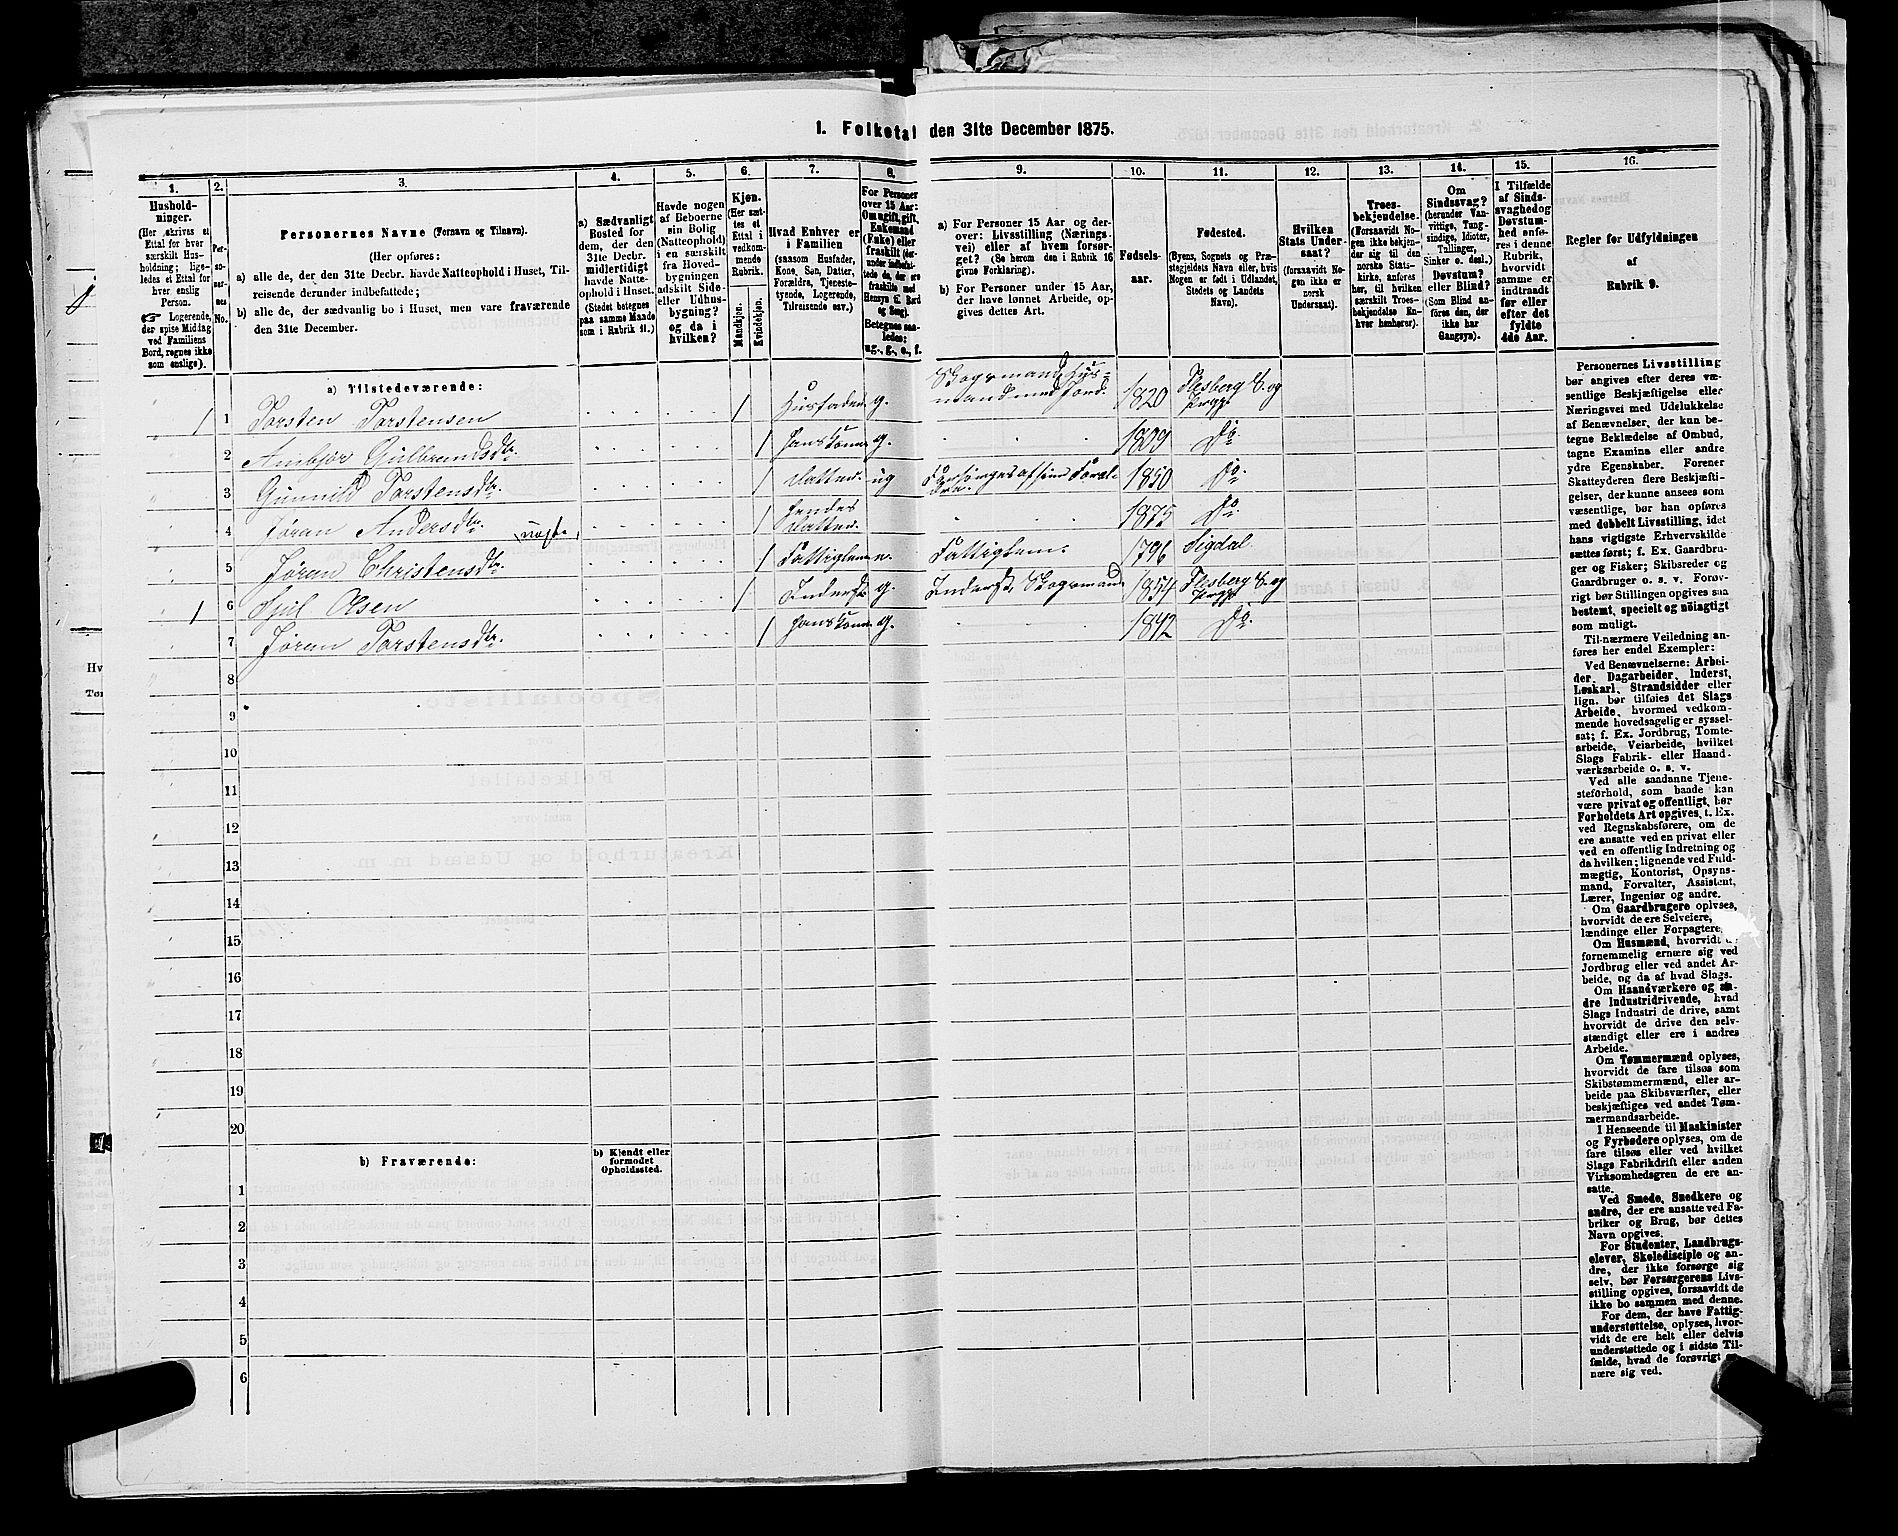 1. Folketal den 31te December 1875.
1. 2. 3. 4. 5. 6. 7. 8. 9. 10. 11. 12. 13. 14. 15. 16.
Hushold-
ninger.
(Her skrives et
Ettal for hver
særskilt Hus-
holdning; lige-
ledes et Ettal for
hver enslig
Person.
☞ Logerende,
der spise Middag
ved Familiens
Bord, regnes ikke
som enslige).
Per-
so-
ner-
nes
No.
Personernes Navne (Fornavn og Tilnavn).
(Her opføres:
a) alle de, der den 31te Decbr. havde Natteophold i Huset, Til-
reisende derunder indbefattede;
b) alle de, der sædvanlig bo i Huset, men vare fraværende
den 31te December.
a) Sædvanligt
Bosted for
dem, der den
31te Decbr.
midlertidigt
havde Natte-
ophold i Huset.
(Stedet betegnes
paa samme Maade
som i Rubrik 11.)
Havde nogen
af Beboerne
sin Bolig
(Natteophold)
i en særskilt
fra Hoved-
bygningen
adskilt Side-
eller Udhus-
bygning?
og da i
hvilken?
Kjøn.
(Her sæt-
tes et
Ettal i
vedkom-
mende
Rubrik.
Mandkjøn.
Kvindekjøn.
Hvad Enhver er
i Familien
(saasom Husfader,
Kone, Søn, Datter,
Forældre, Tjeneste-
tyende, Logerende,
Tilreisende osv.)
For Personer
over 15 Aar:
Om ugift, gift,
Enkemand
(Enke) eller
fraskilt
Betegnes saa-
ledes:
ug., g., e., f.
a) For Personer 15 Aar og der-
over: Livsstilling (Nærings-
vei) eller af hvem forsør-
get? (Se herom den i Rubrik 16
givne Forklaring).
b) For Personer under 15 Aar,
der have lønnet Arbeide, op-
gives dettes Art.
Fødsels-
aar.
Fødested.
(Byens, Sognets og Præ-
stegjeldets Navn eller, hvis
Nogen er født i Udlandet,
Stedets og Landets
Navn).
Hvilken
Stats Under-
saat?
(forsaavidt No-
gen ikke er
norsk
Undersaat).
Troes-
bekjendelse.
(Forsaavidt No-
gen ikke bekjen-
der sig til den
norske Stats-
kirke, anføres
her, til hvilken
særskilt Troes-
bekjendelse En-
hver henhører).
Om
Sindssvag?
(herunder Van-
vittige, Tung-
sindige, Idioter,
Tullinger,
Sinker o. desl.)
Døvstum?
eller Blind?
(Som Blind an-
føres den, der
ikke har
Gangsyn).
I Tilfælde
af Sinds-
svaghed og
Døvstum-
hed anfø-
res i denne
Rubrik,
hvorvidt
samme er
indtraadt
før eller
efter det
fyldte
4de Aar.
Regler for Udfyldningen
af
Rubrik 9.
a) Tilstedeværende:
1 1 Torsten Torstensen 1 Husfader g. Skogsmand, Hus-
mand med Jord. 1820 Flesberg S. og
Prgj.
2 Ambjør Gulbrandsdtr. 1 hans Kone g. 1809 Do.
3 Gunnild Torstensdtr. 1 Datter ug Forsørges af sine Foræl-
dre. 1850 Do.
4 Jøran Andersdtr. 1 hendes
Datter. 1875 Do.
5 Jøran Christensdtr. 1 Fattiglem e. Fattiglem. 1796 Sigdal.
1 6 Kjil Olsen 1 Inderst g. Inderst, Skogsmand 1854 Flesberg S. og
Prgj.
7 Jøran Torstensdtr. 1 hans Kone g. 1842 Do.
8
9
10
11
12
13
14
15
16
17
18
19
20
b) Fraværende:
b) Kjendt eller
formodet
Opholdssted.
1
2
3
4
5
6
Personernes Livsstilling
bør angives efter deres væ-
sentlige Beskjæftigelse eller
Næringsvei med Udelukkelse
af Benævnelser, der kun be-
tegne Beklædelse af Ombud,
tagne Examina eller andre
ydre Egenskaber. Forener
Skatteyderen flere Beskjæfti-
gelser, der kunne ansees som
væsentlige, bør han opføres
med dobbelt Livsstilling, idet
hans vigtigste Erhvervskilde
sættes først; f. Ex. Gaardbru-
ger og Fisker; Skibsreder og
Gaardbruger o. s. v. Forøv-
rigt bør Stillingen opgives saa
bestemt, specielt og nøiagtigt
som muligt.
Til nærmere Veiledning an-
føres her endel Exempler:
Ved Benævnelserne: Arbei-
der, Dagarbeider, Inderst,
Løskarl, Strandsidder eller
lign. bør tilføies det Slags
Arbeide, hvormed vedkom-
mende hovedsagelig er syssel-
sat; f. Ex. Jordbrug, Tomte-
arbeide, Veiarbeide, hvilket
Slags Fabrik- eller Haand-
værksarbeide o. s. v.
Ved alle saadanne Tjene-
steforhold, som baade kan
være privat og offentligt, bør
Forholdets Art opgives, t. Ex.
ved Regnskabsførere, om de
ere ansatte ved en privat eller
ved en offentlig Indretning og
da hvilken; lignende ved Fuld-
mægtig, Kontorist, Opsyns-
mand, Forvalter, Assistent,
Lærer, Ingeniør og andre.
Om Gaardbrugere oplyses,
hvorvidt de ere Selveiere,
Lændinge eller Forpagtere.
Om Husmænd, hvorvidt de
fornemmelig ernære sig ved
Jordbrug eller ved andet Ar-
beide, og da af hvad Slags.
Om Haandværkere og an-
dre Industridrivende, hvad
Slags Industri de drive, samt
hvorvidt de drive den selv-
stændigt eller ere i andres
Arbeide.
Om Tømmermænd oplyses,
hvorvidt de fare tilsøs som
Skibstømmermænd, eller ar-
beide paa Skibsværfter, eller
beskjæftiges ved andet Tøm-
mermandsarbeide.
I Henseende til Maskinister
og Fyrbødere oplyses, om de
fare tilsøs eller ved hvilket
Slags Fabrikdrift eller anden
Virksomhedsgren de ere an-
satte.
Ved Smede, Snedkere og
andre, der ere ansatte ved Fa-
briker og Brug, bør dettes
Navn opgives.
For Studenter, Landbrugs-
elever, Skoledisciple og an-
dre, der ikke forsørge sig
selv, bør Forsørgerens Livs-
stilling opgives, forsaavidt de
ikke bo sammen med denne.
For dem, der have Fattig-
understøttelse, oplyses, hvor-
vidt de ere helt eller delvis
understøttede og i sidste Til-
fælde, hvad de forøvrigt er-
nære sig ved.